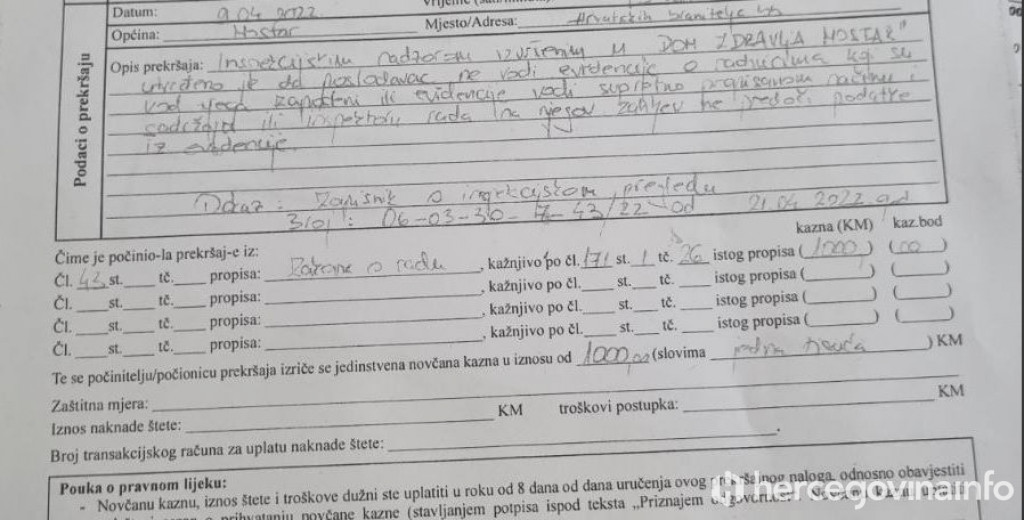 Datum: 9.04.2022.
Općina: Mostar Mjesto/Adresa: Hrvatskih branitelja bb
Podaci o prekršaju
Opis prekršaja: Inspekcijskim nadzorom izvršenim u DOM ZDRAVLJA MOSTAR"
utvrđeno je da poslodavac ne vodi evidencije o radnicima koji su
kod njega zaposleni ili evidencije vodi suprotno propisanom načinu i
sadržaja ili inspektoru rada na njegov zahtjev ne predoči podatke
iz evidencije.
Dokaz: Zapisnik o inspekcijskom pregledu
broj: 06-03-30-7-43/22 od 21.04.2022. god
kazna (KM) kaz.bod
Čime je počinio-la prekršaj-e iz:
Čl. 43 st.____ tč.____ propisa: Zakona o radu, kažnjivo po čl. 171 st. 1 tč. 26 istog propisa (1000) (00)
Čl. ____st.____ tč.____ propisa: ____, kažnjivo po čl.____ st.____ tč. ____ istog propisa (____) (____)
Čl. ____st.____ tč.____ propisa: ____, kažnjivo po čl.____ st.____ tč. ____ istog propisa (____) (____)
Čl. ____st.____ tč.____ propisa: ____, kažnjivo po čl.____ st.____ tč. ____ istog propisa (____) (____)
Te se počinitelju/počionicu prekršaja izriče se jedinstvena novčana kazna u iznosu od 1000,00 (slovima jedna tisuća) KM
Zaštitna mjera:
Iznos naknade štete: ____ KM troškovi postupka: ____ KM
Broj transakcijskog računa za uplatu naknade štete: ____.
Pouka o pravnom lijeku:
- Novčanu kaznu, iznos štete i troškove dužni ste uplatiti u roku od 8 dana od dana uručenja ovog prekršajnog naloga, odnosno obavjestiti
o prihvatanju novčane kazne (stavljanjem potpisa ispod teksta „Priznajem odgovornost"
hercegovina.info